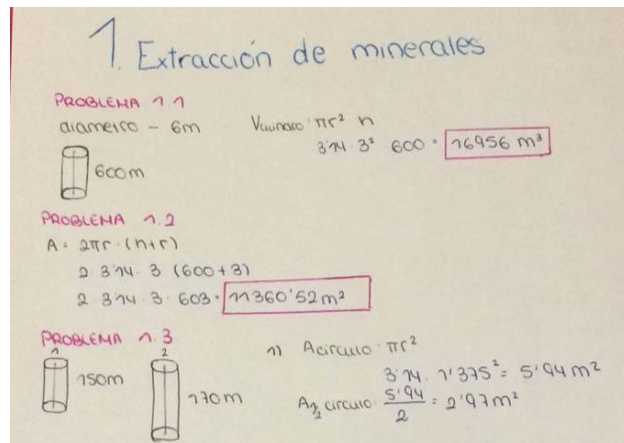 1. Extracción de minerales
PROBLEMA 1.1
diametro - 6m
Vcilindro · πr² h
3'14 · 3² 600 · 16956 m³
600m
PROBLEMA 1.2
A = 2πr · (h+r)
2 · 3'14 · 3 (600+3)
2 · 3'14 · 3 · 603 · 11360'52m²
PROBLEMA 1.3
1 150m
2 170m
1) Acirculo · πr²
3'14 · 1'375² = 5'94 m²
A½ circulo · 5'94/2 = 2'97m²